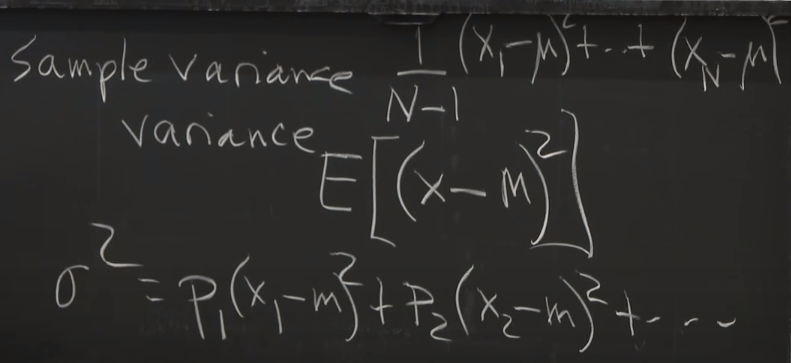 Sample variance 1/N-1 (x₁-μ)²+...+(x_N-μ)²
variance E[(x-m)²]
σ²=p₁(x₁-m)²+p₂(x₂-m)²+....